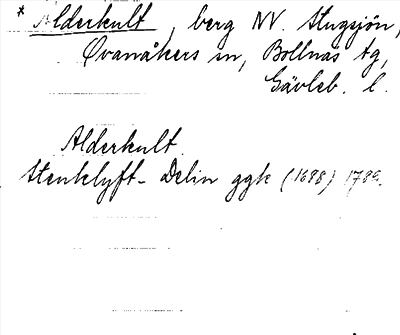 * Alderkult, berg NV. Hugsjön,
Ovanåkers sn, Bollnäs tg,
Gävleb. l.
Alderkult
Stenklyft - Delin ggk (1698) 1789.